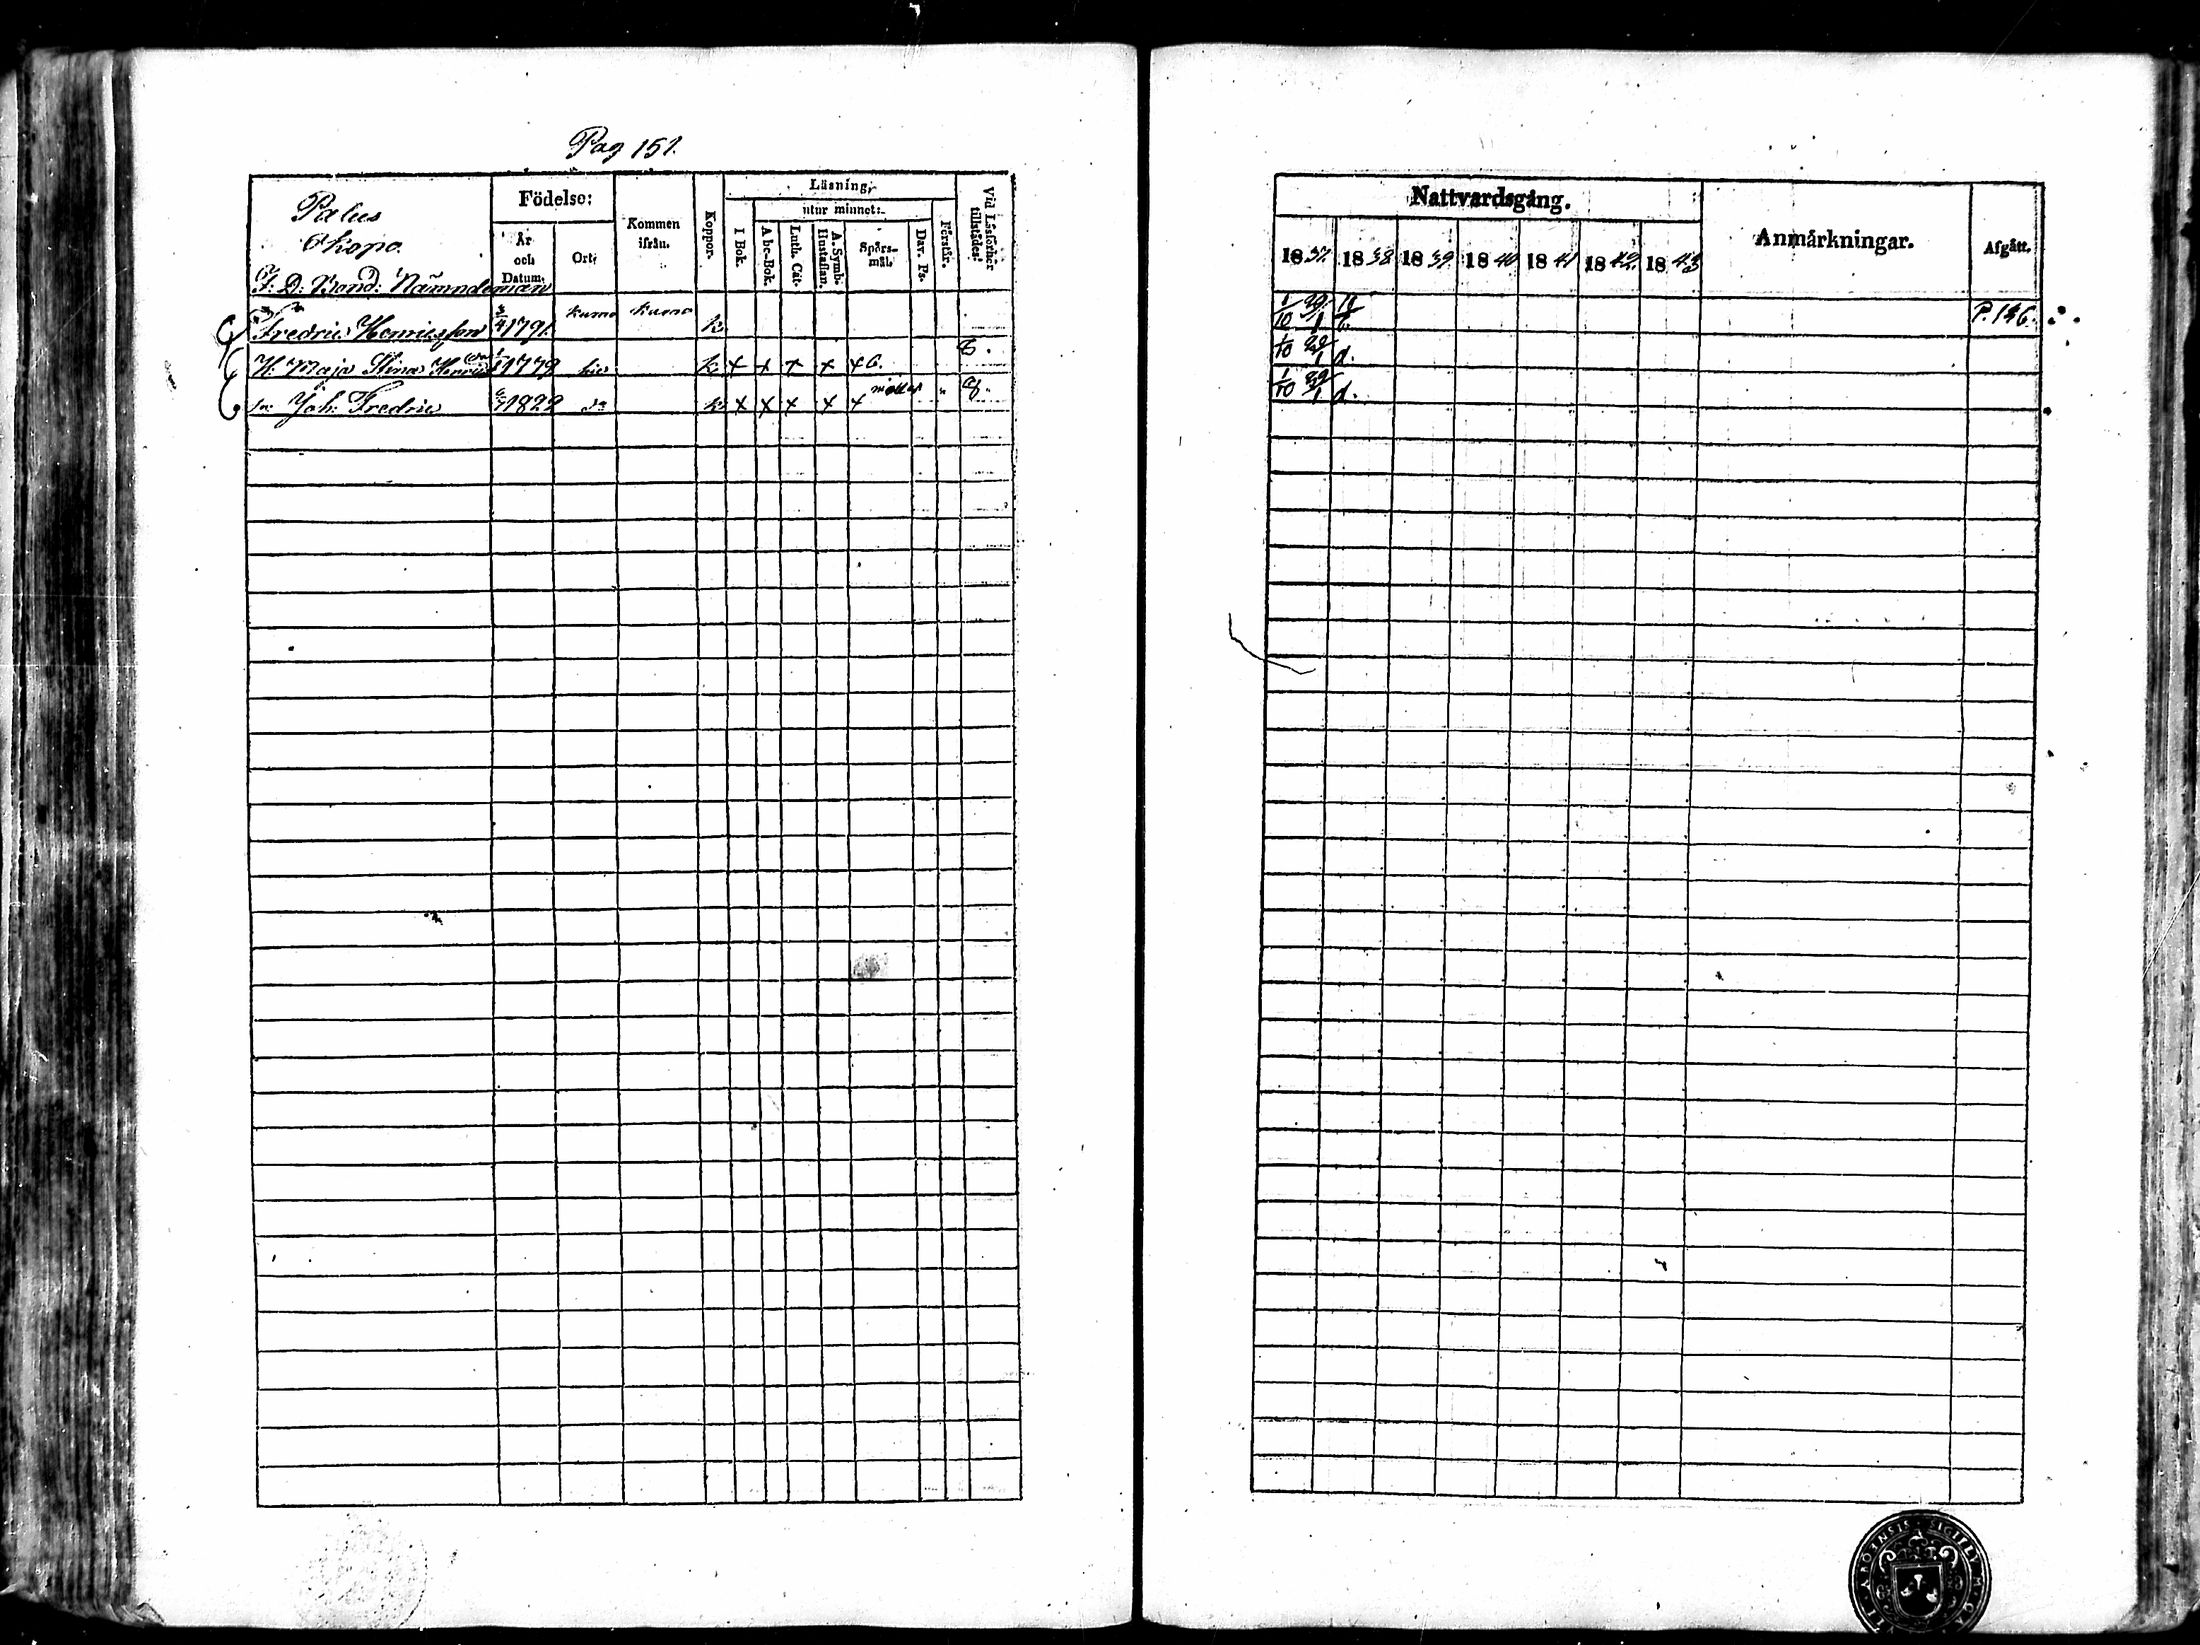 Pag 151.
Palus
Skopo.
F. D: Bond: Nämndeman
Födelse:
År och Datum.
Ort.
Kommen ifrån.
Koppor.
Läsning,
utur minnet:
I Bok.
A be-Bok.
Luth. Cät.
A. Symb. Hustaflan.
Spörs-mål.
Dav. Ps.
Förstår.
Vid Läsförhör tillstädes:
Fredric Henricsson 3/4 1791. Kumo Kumo k
H: Maja Stina 1779 hic k x x x x x
sn: Joh: Fredric 1822 do k x x x x x
Nattvardsgång.
1837. 1838 1839 1840 1841 1842. 1843
Anmärkningar.
Afgått.
1/10 29/1 P. 146.
1/10 29/1 d.
1/10 29/1 d.